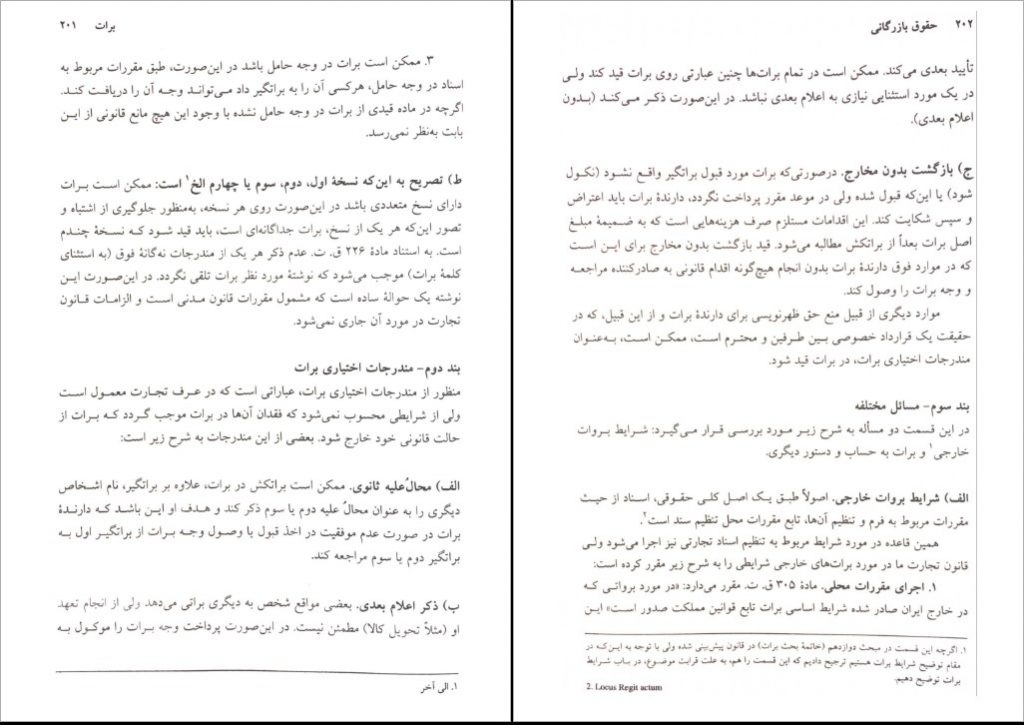 برات ۲۰۱
۳. ممکن است برات در وجه حامل باشد در این‌صورت، طبق مقررات مربوط به
اسناد در وجه حامل، هرکسی آن را به براتگیر داد می‌تواند وجه آن را دریافت کند.
اگرچه در ماده قیدی از برات در وجه حامل نشده با وجود این هیچ مانع قانونی از این
بابت به‌نظر نمی‌رسد.
ط) تصریح به این‌که نسخهٔ اول، دوم، سوم یا چهارم الخ۱ است: ممکن است برات
دارای نسخ متعددی باشد در این‌صورت روی هر نسخه، به‌منظور جلوگیری از اشتباه و
تصور این‌که هر یک از نسخ، برات جداگانه‌ای است، باید قید شود که نسخهٔ چندم
است. به استناد مادهٔ ۲۲۶ ق. ت. عدم ذکر هر یک از مندرجات نه‌گانهٔ فوق (به استثنای
کلمهٔ برات) موجب می‌شود که نوشتهٔ مورد نظر برات تلقی نگردد. در این‌صورت این
نوشته یک حوالهٔ ساده است که مشمول مقررات قانون مدنی است و الزامات قانون
تجارت در مورد آن جاری نمی‌شود.
بند دوم- مندرجات اختیاری برات
منظور از مندرجات اختیاری برات، عباراتی است که در عرف تجارت معمول است
ولی از شرایطی محسوب نمی‌شود که فقدان آن‌ها در برات موجب گردد که برات از
حالت قانونی خود خارج شود. بعضی از این مندرجات به شرح زیر است:
الف) محالٌ‌علیه ثانوی. ممکن است براتکش در برات، علاوه بر براتگیر، نام اشخاص
دیگری را به عنوان محالٌ علیه دوم یا سوم ذکر کند و هدف او این باشد که دارندهٔ
برات در صورت عدم موفقیت در اخذ قبول یا وصول وجه برات از براتگیر اول به
براتگیر دوم یا سوم مراجعه کند.
ب) ذکر اعلام بعدی. بعضی مواقع شخص به دیگری براتی می‌دهد ولی از انجام تعهد
او (مثلاً تحویل کالا) مطمئن نیست. در این‌صورت پرداخت وجه برات را موکول به
۱. الی آخر
۲۰۲ حقوق بازرگانی
تأیید بعدی می‌کند. ممکن است در تمام برات‌ها چنین عبارتی روی برات قید کند ولی
در یک مورد استثنایی نیازی به اعلام بعدی نباشد. در این‌صورت ذکر می‌کند (بدون
اعلام بعدی).
ج) بازگشت بدون مخارج. درصورتی‌که برات مورد قبول براتگیر واقع نشود (نکول
شود) یا این‌که قبول شده ولی در موعد مقرر پرداخت نگردد، دارندهٔ برات باید اعتراض
و سپس شکایت کند. این اقدامات مستلزم صرف هزینه‌هایی است که به ضمیمهٔ مبلغ
اصل برات بعداً از براتکش مطالبه می‌شود. قید بازگشت بدون مخارج برای این است
که در موارد فوق دارندهٔ برات بدون انجام هیچ‌گونه اقدام قانونی به صادرکننده مراجعه
و وجه برات را وصول کند.
موارد دیگری از قبیل منع حق ظهرنویسی برای دارندهٔ برات و از این قبیل، که در
حقیقت یک قرارداد خصوصی بین طرفین و محترم است، ممکن است، به‌عنوان
مندرجات اختیاری برات، در برات قید شود.
بند سوم- مسائل مختلفه
در این قسمت دو مسأله به شرح زیر مورد بررسی قرار می‌گیرد: شرایط بروات
خارجی۱ و برات به حساب و دستور دیگری.
الف) شرایط بروات خارجی. اصولاً طبق یک اصل کلی حقوقی، اسناد از حیث
مقررات مربوط به فرم و تنظیم آن‌ها، تابع مقررات محل تنظیم سند است۲.
همین قاعده در مورد شرایط مربوط به تنظیم اسناد تجارتی نیز اجرا می‌شود ولی
قانون تجارت ما در مورد برات‌های خارجی شرایطی را به شرح زیر مقرر کرده است:
۱. اجرای مقررات محلی. مادهٔ ۳۰۵ ق. ت. مقرر می‌دارد: «در مورد برواتی که
در خارج ایران صادر شده شرایط اساسی برات تابع قوانین مملکت صدور است» این
۱. اگرچه این قسمت در مبحث دوازدهم (خاتمهٔ بحث برات) در قانون پیش‌بینی شده ولی با توجه به این‌که در
مقام توضیح شرایط برات هستیم ترجیح دادیم که این قسمت را هم، به علت قرابت موضوع، در باب شرایط
برات توضیح دهیم.
2. Locus Regit actum